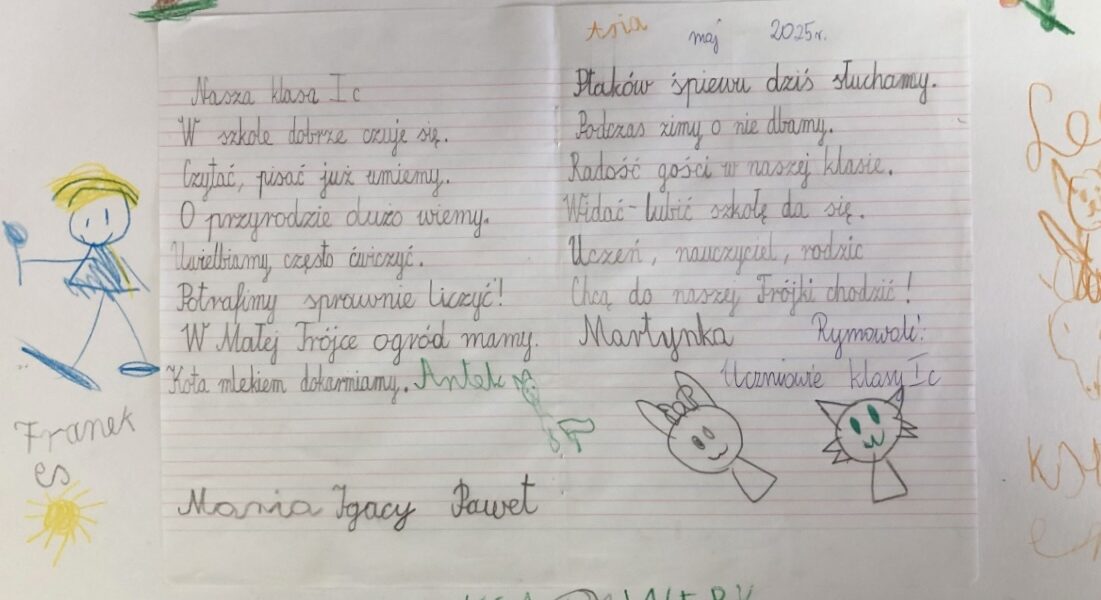 Nasza klasa I c
W szkole dobrze czuje się.
Czytać, pisać już umiemy.
O przyrodzie dużo wiemy.
Uwielbiamy często ćwiczyć.
Potrafimy sprawnie liczyć!
W Małej Trójce ogród mamy.
Kota mlekiem dokarmiamy. Antek
Mania Igacy Paweł
Asia maj 2025r.
Ptaków śpiewu dziś słuchamy.
Podczas zimy o nie dbamy.
Radość gości w naszej klasie.
Widać - lubić szkołę da się.
Uczeń, nauczyciel, rodzic
Chcą do naszej Trójki chodzić!
Martynka Rymowali:
Uczniowie klasy I c
Franek
es